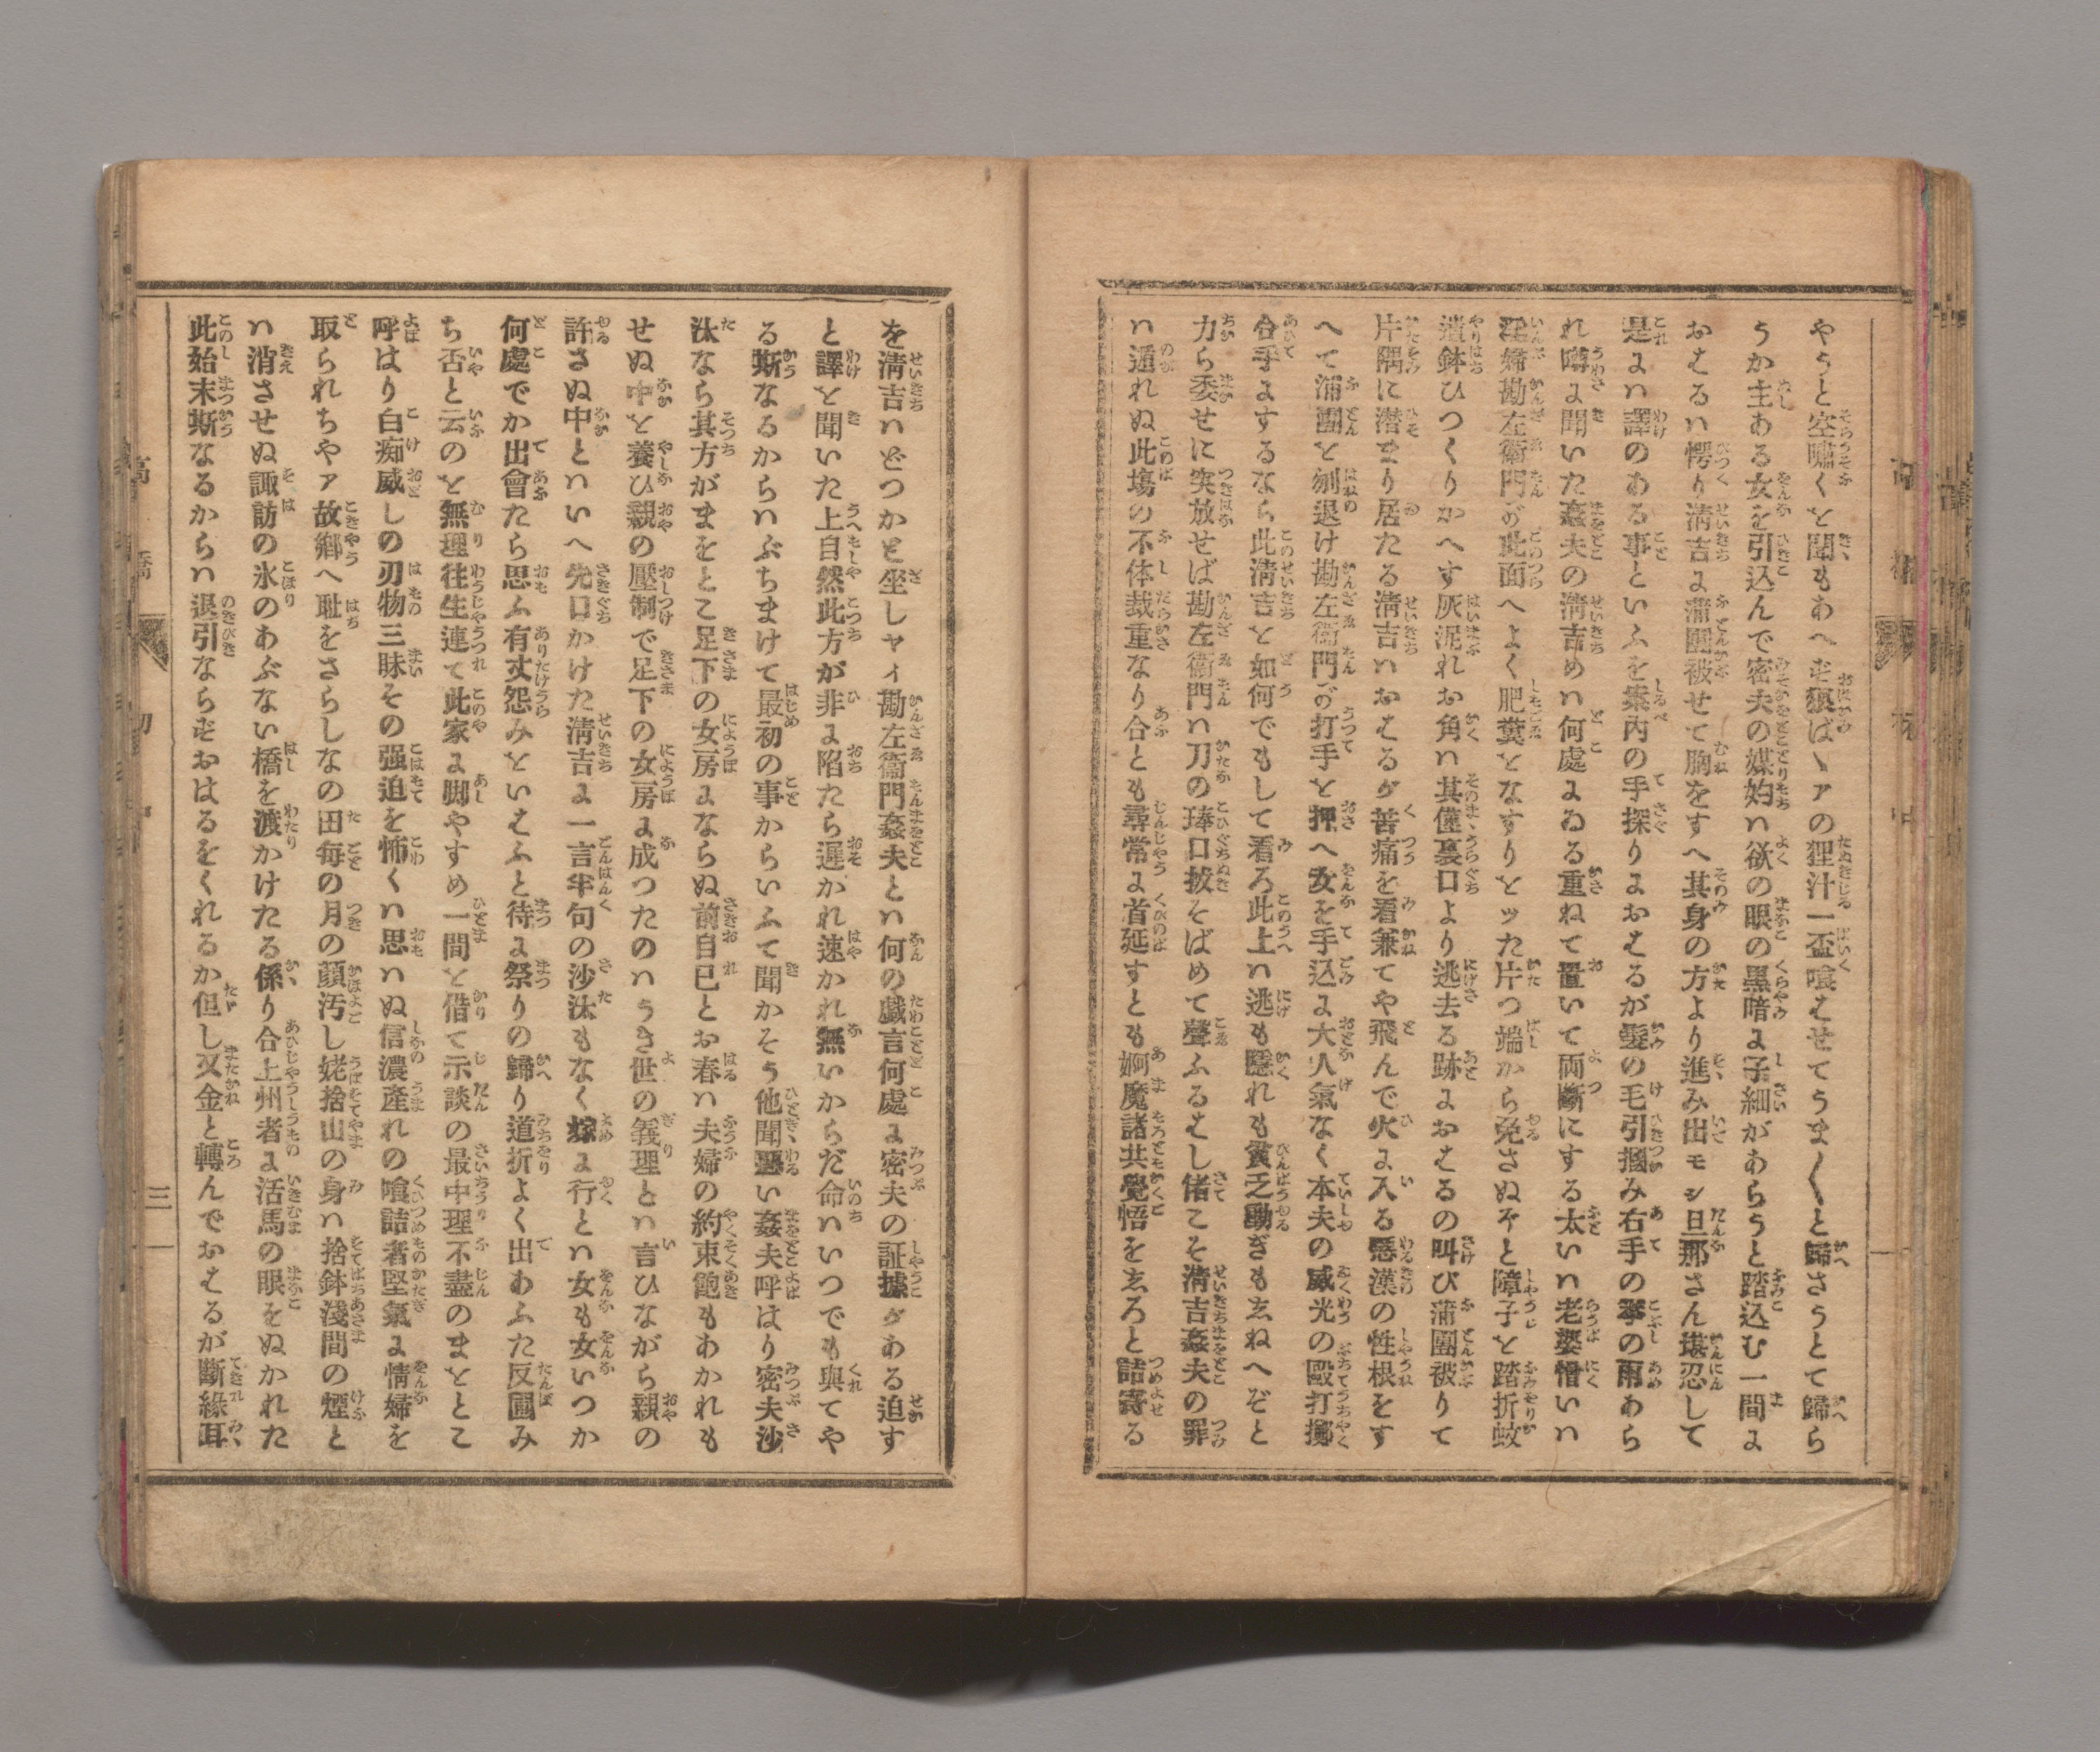 やうと空嘯くを聞もあへぞ狼ばゝアの狸汁一盃喰はせてうま〳〵と歸さうとて歸ら
うか主ある女を引込んで密夫の媒妁ハ欲の眼の黒暗に子細があらうと踏込む一間に
おはるハ愕り淸吉に蒲團被せて胸をすへ其身の方より進み出モシ旦那さん堪忍して
是にハ譯のある事といふを案内の手探りにおはるが髮の毛引摑み右手の拳の雨あら
れ噂に聞いた姦夫の淸吉めハ何處にゐる重ねて置いて両斷にする太いハ老婆憎いハ
淫婦勘左衛門が此面へよく肥糞をなすりをッた片つ端から免さぬぞと障子を踏折蚊
遣鉢ひつくりかへす灰泥れお角ハ其儘裏口より逃去る跡におはるの叫び蒲團被りて
片隅に潜まり居たる淸吉ハおはるが苦痛を看兼てや飛んで火に入る惡漢の性根をす
へて蒲團を刎退け勘左衛門が打手を押へ女を手込に大人氣なく本夫の威光の毆打擲
合手にするなら此淸吉を如何でもして看ろ此上ハ逃も隱れも貧乏動ぎもゑねへぞと
力ら委せに突放せば勘左衛門ハ刀の琫口拔そばめて聲ふるはし偖こそ淸吉姦夫の罪
ハ遁れぬ此塲の不体裁重なり合とも尋常に首延すとも婀魔諸共覺悟をゑろと詰寄る
を淸吉ハどつかと坐しヤイ勘左衛門姦夫とハ何の戯言何處に密夫の証據がある迫す
と譯を聞いた上自然此方が非に陷たら遲かれ速かれ無いからだ命ハいつでも與てや
る斯なるからハぶちまけて最初の事からいふて聞かそう他聞惡い姦夫呼はり密夫沙
汰なら其方がまをとこ足下の女房にならぬ前自己とお春ハ夫婦の約束飽もあかれも
せぬ中を養ひ親の壓制で足下の女房に成つたのハうき世の義理とハ言ひながら親の
許さぬ中とハいへ先口かけた淸吉に一言半句の沙汰もなく嫁に行とハ女も女いつか
何處でか出會たら思ふ有丈怨みをいはふと待に祭りの歸り道折よく出あふた反圃み
ち否と云のを無理往生連て此家に脚やすめ一間を借て示談の最中理不盡のまをとこ
呼はり白痴威しの刃物三昧その强迫を怖くハ思ハぬ信濃産れの喰詰者堅氣に情婦を
取られちやア故鄕へ耻をさらしなの田毎の月の顔汚し姥捨山の身ハ捨鉢淺間の煙と
ハ消させぬ諏訪の氷のあぶない橋を渡かけたる係り合上州者に活馬の眼をぬかれた
此始末斯なるからハ退引ならぞおはるをくれるか但し又金と轉んでおはるが斷緣耳